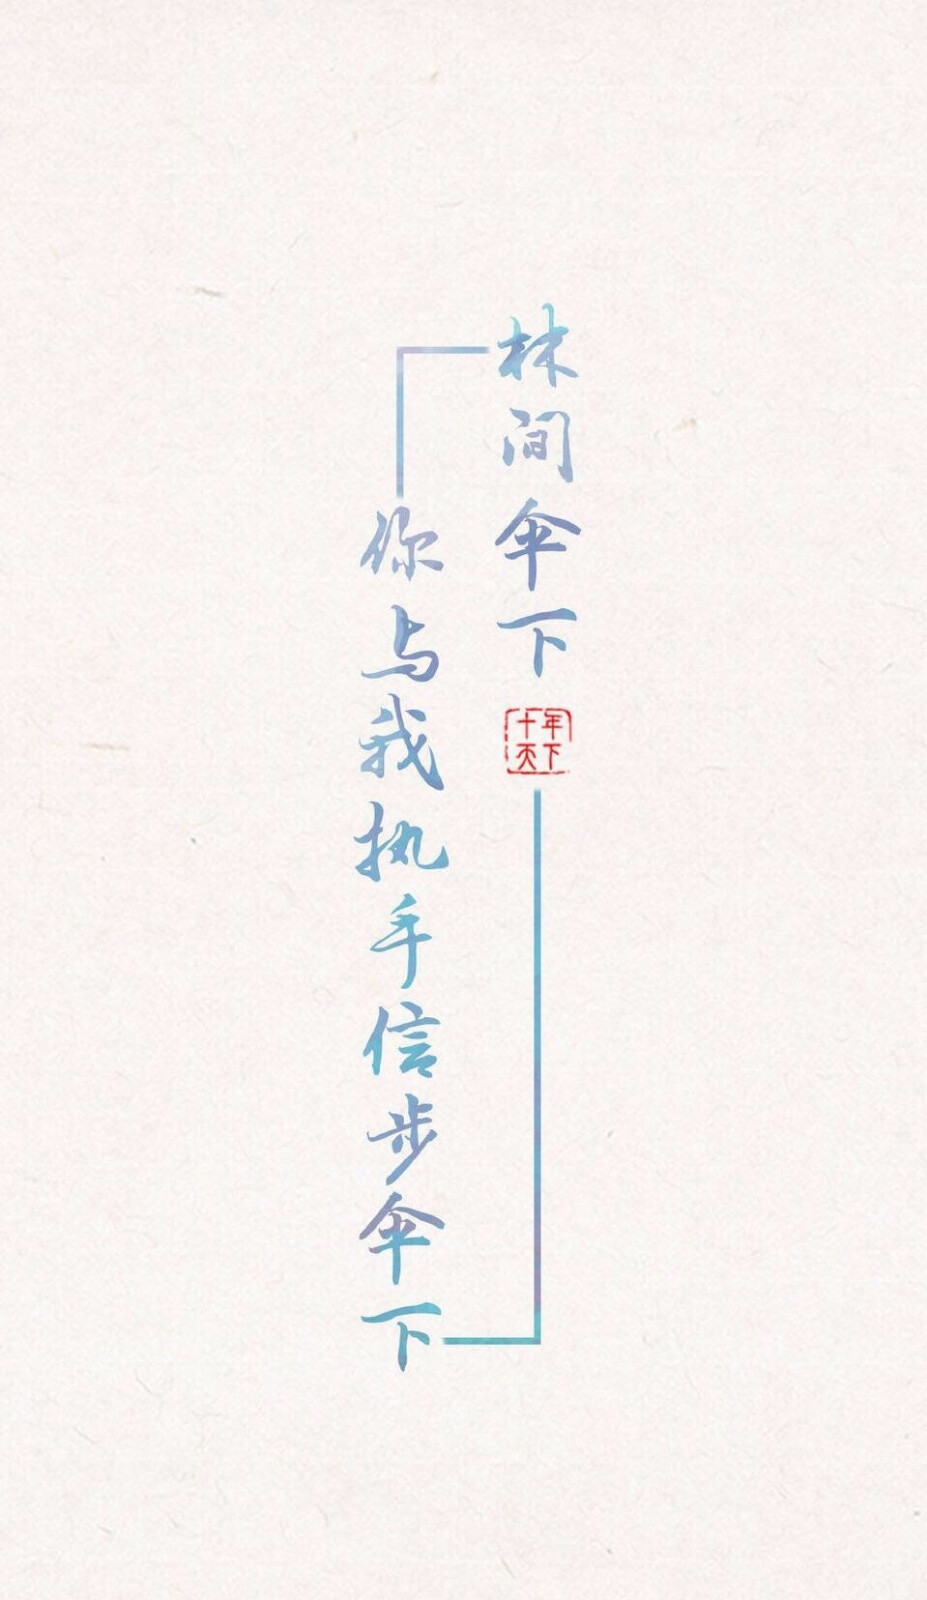 林间伞下
十年
天下
你与我执手信步伞下